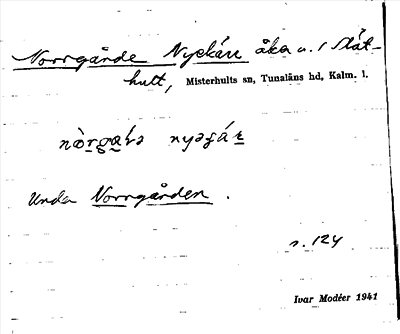 Norrgårde Nyckán åka u. / Slät-
hult, Misterhults sn, Tunaläns hd, Kalm. l.
Unda Norrgården.
s. 124
Ivar Modéer 1941